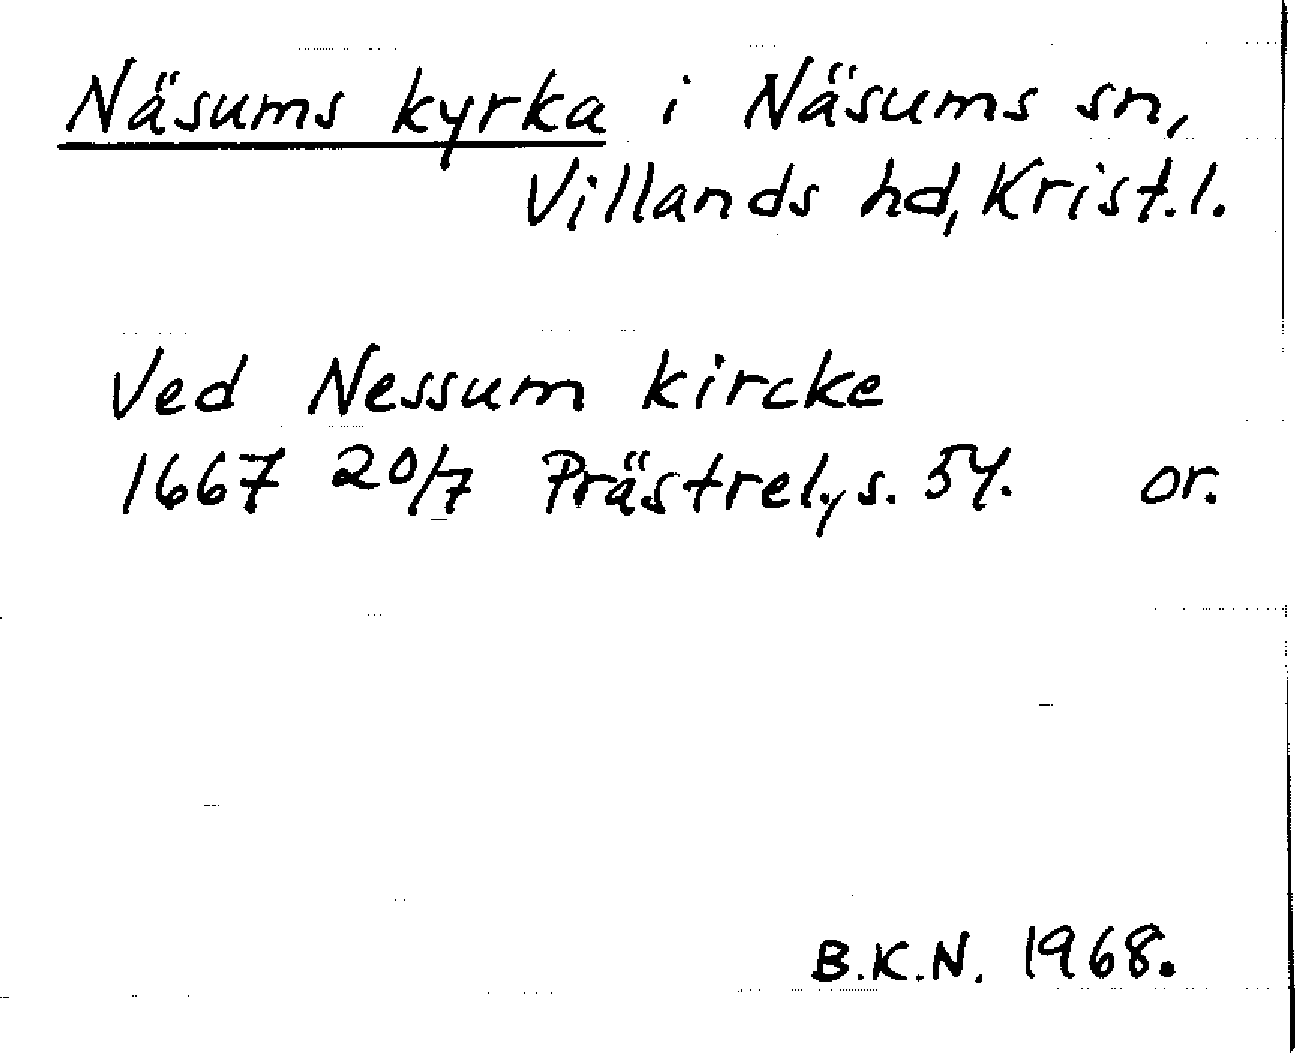 Näsums kyrka i Näsums sn,
Villands hd, Krist. l.
Ved Nessum kircke
1667 20/7 Prästrel., s. 54. or.
B.K.N. 1968.